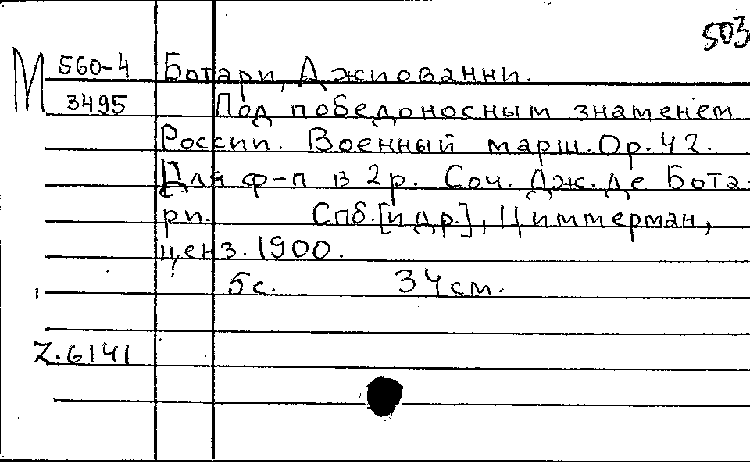 503
М 560-4 Ботари, Джиованни.
3495 Под победоносным знаменем
России. Военный марш. Op. 42.
Для ф-п в 2 р. Соч. Дж. де Бота-
ри. Спб. [и др.], Циммерман,
ценз. 1900.
5 с. 34 см.
Z. 6141